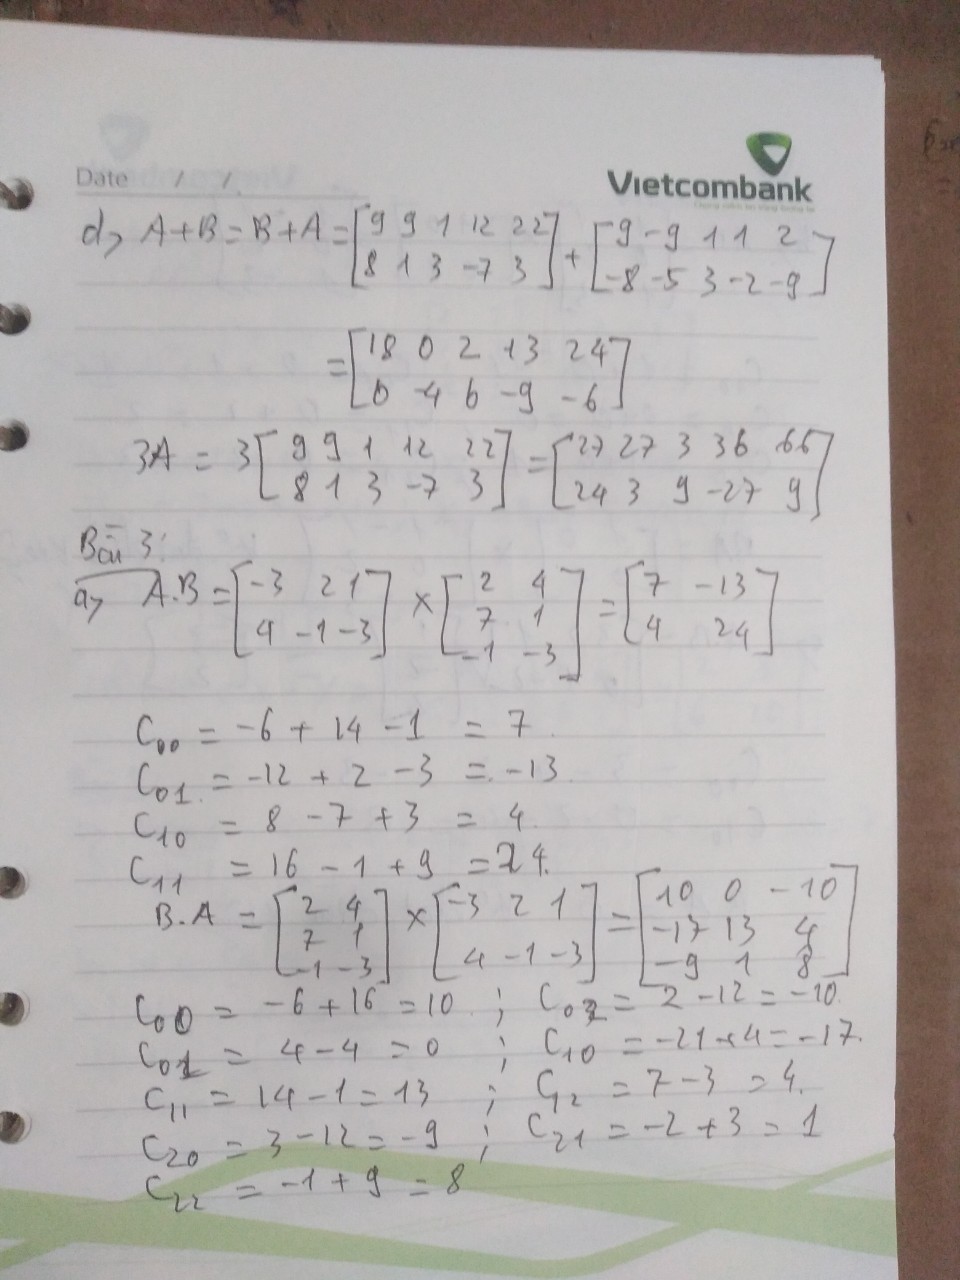 Date / /
Vietcombank
d, A+B = B+A = [9 9 1 12 22] + [9 -9 1 1 2]
[8 1 3 -7 3] [-8 -5 3 -2 -9]
= [18 0 2 13 24]
[0 -4 6 -9 -6]
3A = 3 [9 9 1 12 22] = [27 27 3 36 66]
[8 1 3 -7 3] [24 3 9 -27 9]
Bài 3:
a, A.B = [-3 2 1] × [2 4] = [7 -13]
[4 -1 -3] [7 1] [4 24]
[-1 -3]
C₀₀ = -6 + 14 - 1 = 7.
C₀₁ = -12 + 2 - 3 = -13
C₁₀ = 8 - 7 + 3 = 4.
C₁₁ = 16 - 1 + 9 = 24.
B.A = [2 4] × [-3 2 1] = [10 0 -10]
[7 1] [4 -1 -3] [-17 13 4]
[-1 -3] [-9 1 8]
C₀₀ = -6 + 16 = 10 ; C₀₂ = 2 - 12 = -10.
C₀₁ = 4 - 4 = 0 ; C₁₀ = -21 + 4 = -17.
C₁₁ = 14 - 1 = 13 ; C₁₂ = 7 - 3 = 4.
C₂₀ = 3 - 12 = -9 ; C₂₁ = -2 + 3 = 1
C₂₂ = -1 + 9 = 8